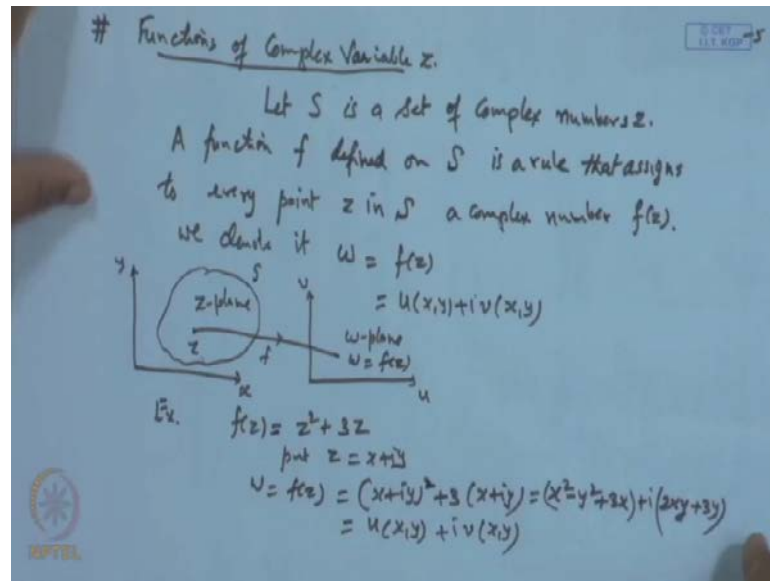 # Functions of Complex Variable z.
© CET
I.I.T. KGP
Let S is a set of complex numbers z.
A function f defined on S is a rule that assigns
to every point z in S a complex number f(z).
we denote it w = f(z)
= u(x,y)+i v(x,y)
y
S
z-plane
z
f
x
v
w-plane
w = f(z)
u
Ex. f(z) = z²+3z
put z = x+iy
w = f(z) = (x+iy)²+3(x+iy) = (x²-y²+3x)+i(2xy+3y)
= u(x,y) + i v(x,y)
NPTEL